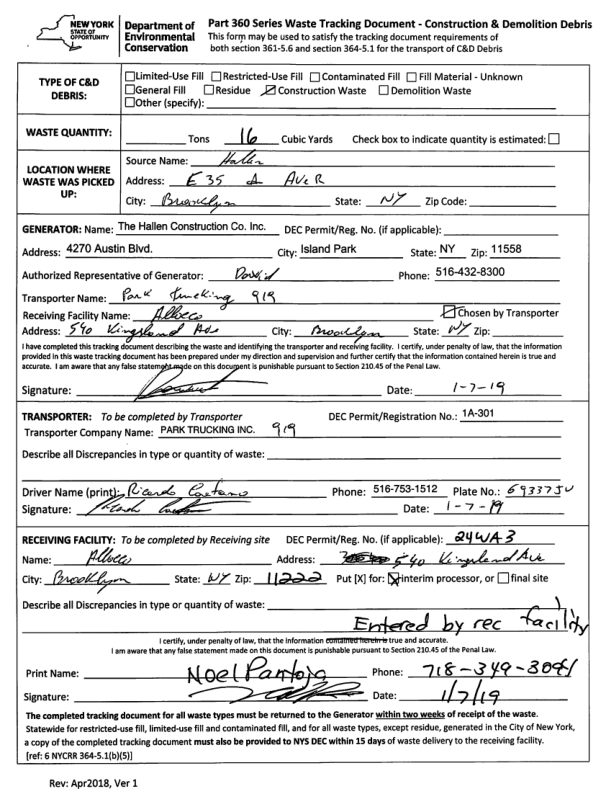 NEW YORK STATE OF OPPORTUNITY
Department of Environmental Conservation
Part 360 Series Waste Tracking Document - Construction & Demolition Debris
This form may be used to satisfy the tracking document requirements of
both section 361-5.6 and section 364-5.1 for the transport of C&D Debris
TYPE OF C&D DEBRIS:
☐Limited-Use Fill ☐Restricted-Use Fill ☐Contaminated Fill ☐Fill Material - Unknown
☐General Fill ☐Residue ☑Construction Waste ☐Demolition Waste
☐Other (specify):
WASTE QUANTITY: Tons 16 Cubic Yards Check box to indicate quantity is estimated: ☐
LOCATION WHERE WASTE WAS PICKED UP:
Source Name: Hallen
Address: E 35 & Ave R
City: Brooklyn State: NY Zip Code:
GENERATOR: Name: The Hallen Construction Co. Inc. DEC Permit/Reg. No. (if applicable):
Address: 4270 Austin Blvd. City: Island Park State: NY Zip: 11558
Authorized Representative of Generator: Phone: 516-432-8300
Transporter Name: Park trucking 919
Receiving Facility Name: Allocco ☑Chosen by Transporter
Address: 540 Kingsland Ave City: Brooklyn State: NY Zip:
I have completed this tracking document describing the waste and identifying the transporter and receiving facility. I certify, under penalty of law, that the information
provided in this waste tracking document has been prepared under my direction and supervision and further certify that the information contained herein is true and
accurate. I am aware that any false statement made on this document is punishable pursuant to Section 210.45 of the Penal Law.
Signature: Date: 1-7-19
TRANSPORTER: To be completed by Transporter DEC Permit/Registration No.: 1A-301
Transporter Company Name: PARK TRUCKING INC. 919
Describe all Discrepancies in type or quantity of waste:
Driver Name (print): Ricardo Caetano Phone: 516-753-1512 Plate No.: 69337JU
Signature: Date: 1-7-19
RECEIVING FACILITY: To be completed by Receiving site DEC Permit/Reg. No. (if applicable): 24WA3
Name: Allocco Address: 540 Kingsland Ave
City: Brooklyn State: NY Zip: 11222 Put [X] for: ☒interim processor, or ☐final site
Describe all Discrepancies in type or quantity of waste:
Entered by rec facility
I certify, under penalty of law, that the information contained herein is true and accurate.
I am aware that any false statement made on this document is punishable pursuant to Section 210.45 of the Penal Law.
Print Name: Noel Pantoja Phone: 718-349-3091
Signature: Date: 1/7/19
The completed tracking document for all waste types must be returned to the Generator within two weeks of receipt of the waste.
Statewide for restricted-use fill, limited-use fill and contaminated fill, and for all waste types, except residue, generated in the City of New York,
a copy of the completed tracking document must also be provided to NYS DEC within 15 days of waste delivery to the receiving facility.
[ref: 6 NYCRR 364-5.1(b)(5)]
Rev: Apr2018, Ver 1